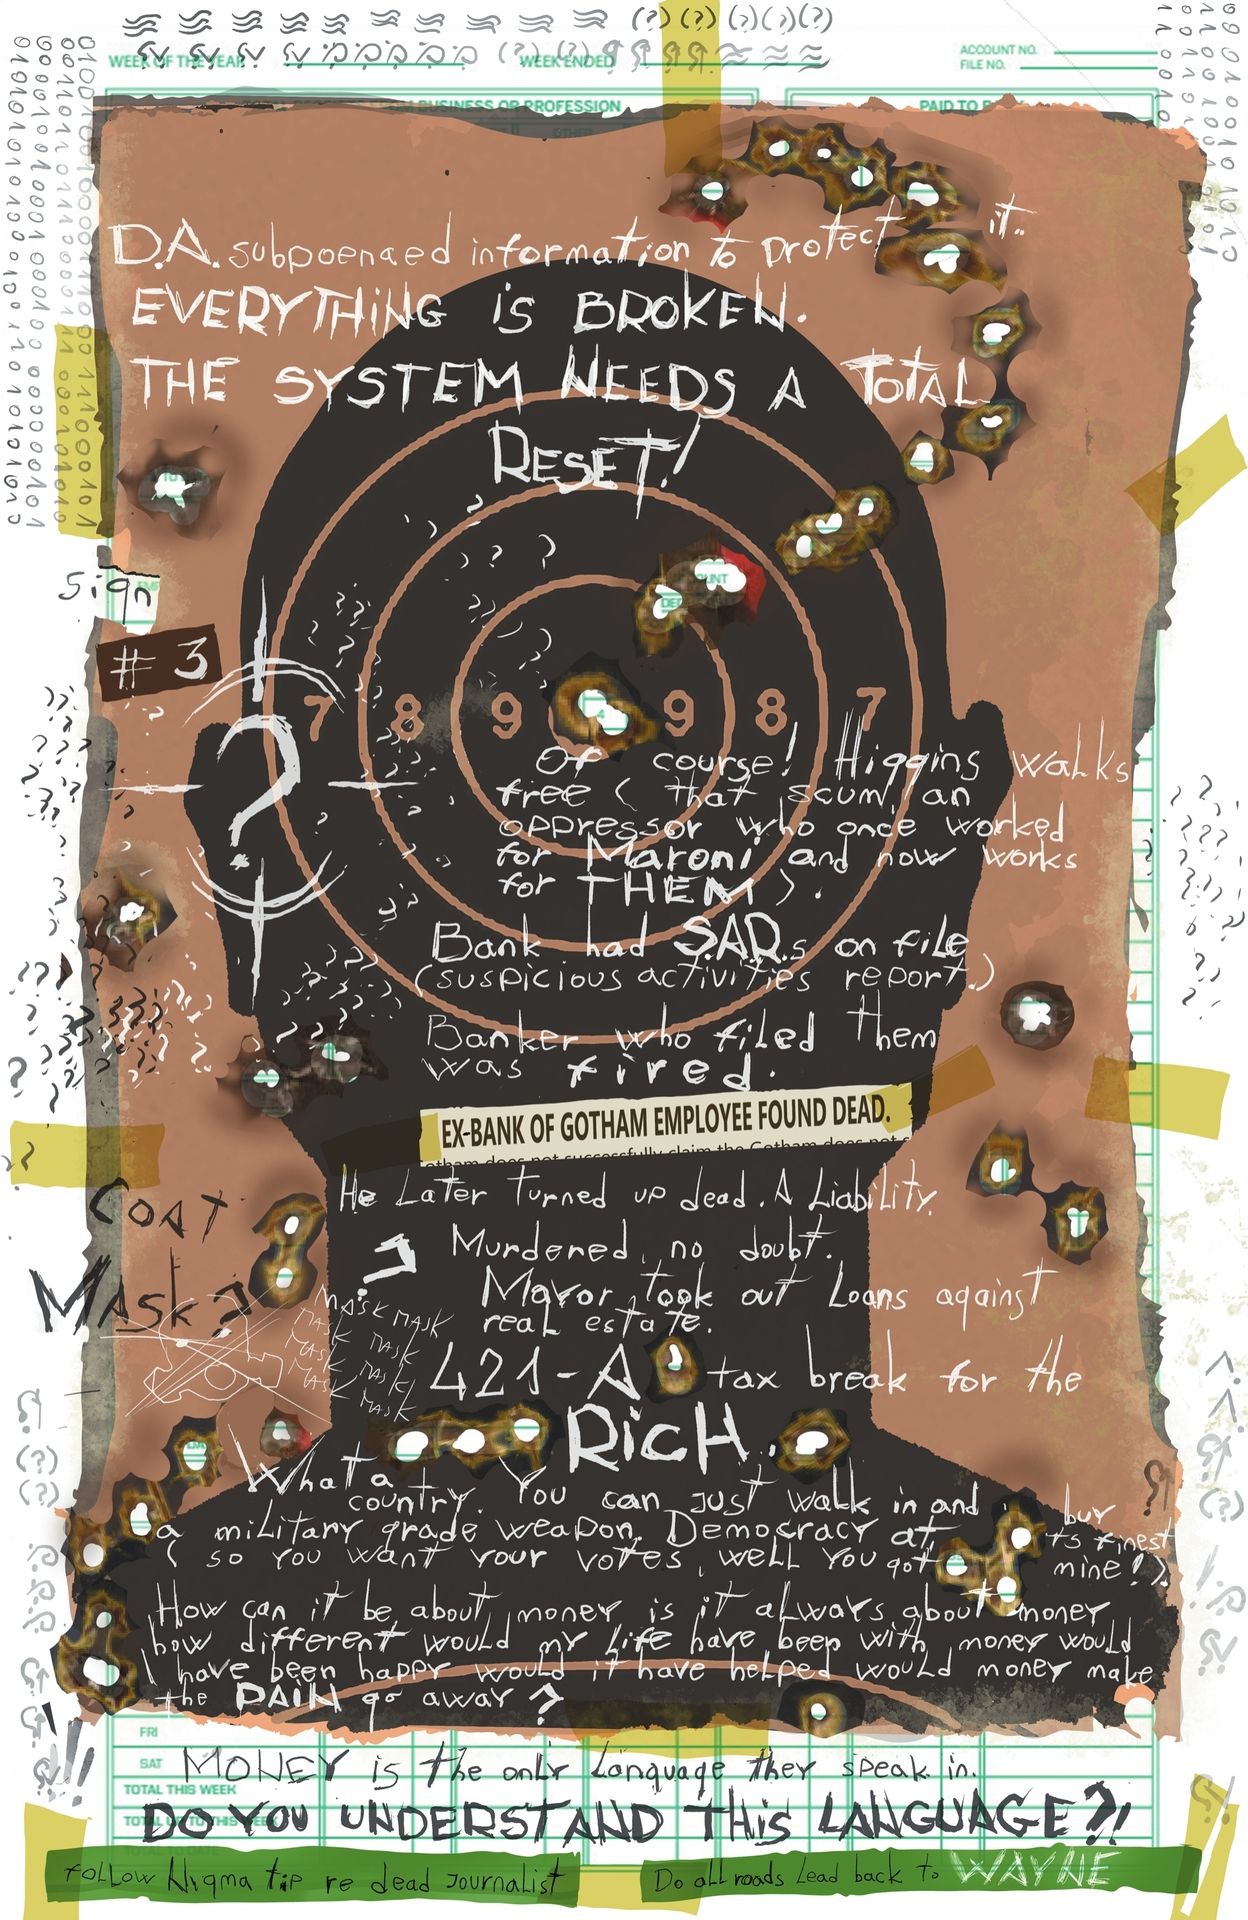 WEEK OF THE YEAR
WEEK ENDED
ACCOUNT NO.
FILE NO.
BUSINESS OR PROFESSION
PAID TO
D.A. subpoenaed information to protect it.
EVERYTHING iS BROKEN.
THE SYSTEM NEEDS A TOTAL
RESET!
Sign
# 3
?
7 8 9 9 8 7
Of course! Higgins walks
free ( that scum, an
oppressor who once worked
for Maroni and now works
for THEM ).
Bank had S.A.R.s on file
(suspicious activities report.)
Banker who filed them
was fired.
EX-BANK OF GOTHAM EMPLOYEE FOUND DEAD.
otham does not successfully claim the Gotham does not s
He Later turned up dead. A Liability.
Murdered, no doubt.
COAT
MASK?
Mayor took out Loans against
real estate.
MASK MASK
MASK MASK
MASK MASK
MASK MASK
MASK
421-A tax break for the
RicH.
What a
country. You can just walk in and buy
a military grade weapon. Democracy at its finest
( so you want your votes, well you got mine!)
How can it be about money is it always about money
how different would my life have been with money would
I have been happy would it have helped would money make
the PAiN go away?
FRI
SAT
TOTAL THIS WEEK
MONEY is the only Language they speak in.
DO YOU UNDERSTAND THiS LANGUAGE?!
follow Nygma tip re dead journalist
Do all roads Lead back to WAYNE